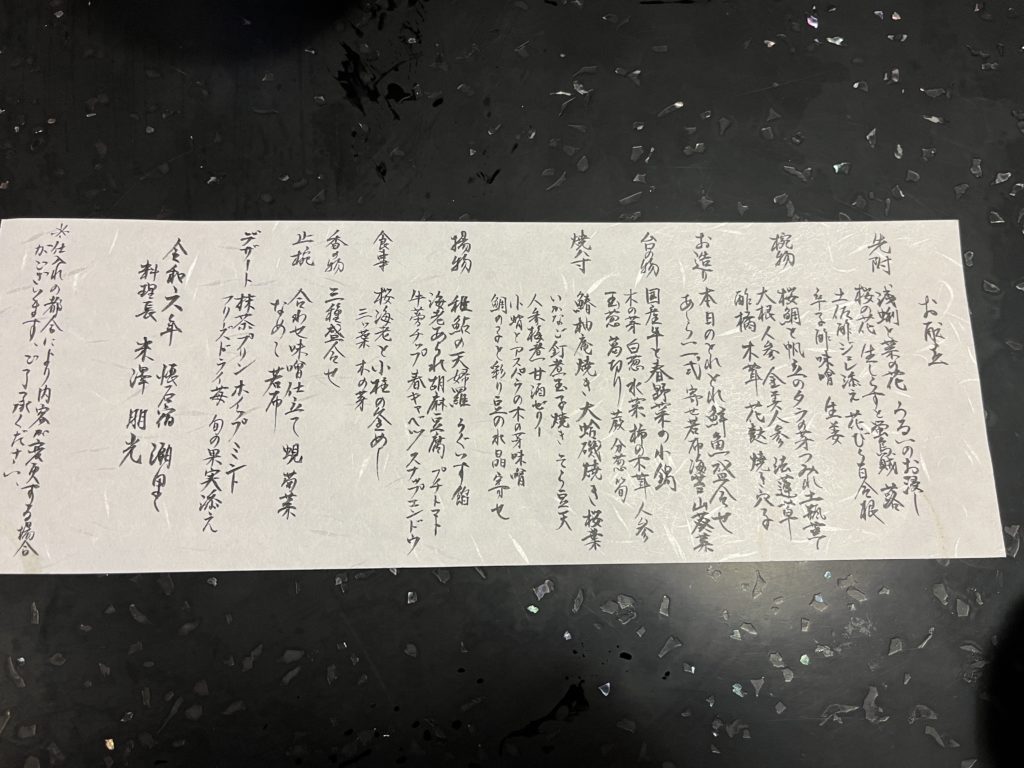 お献立
先附
浅蜊と菜の花 うるいのお浸し
桜の花 生しらすと蛍烏賊 蕗
土佐酢ジュレ添え 花びら百合根
辛子酢味噌 生姜
椀物
桜鯛と帆立のタラの芽つみれ土瓶蒸し
大根 人参 金玉人参 法蓮草
酢橘 木茸 花麩 焼き穴子
お造り
本日のとれとれ鮮魚一盛合せ
あしらい一式 寄せ若布 海苔 山葵菜
台の物
国産牛と春野菜の小鍋
木の芽 白葱 水菜 柿の木茸 人参
玉葱 蕨 分葱 筍
焼八寸
鰆柚庵焼き 大蛤磯焼き 桜葉
いかなご釘煮玉子焼き そら豆天
人参桜煮 甘酒ゼリー
小蛸とアスパラの木の芽味噌
鯛の子と彩り豆の水晶寄せ
揚物
稚鮎の天婦羅 うぐいす餡
海老あられ胡麻豆腐 プチトマト
牛蒡チップ 春キャベツ スナップエンドウ
食事
桜海老と小柱の釜めし
三ッ葉 木の芽
香の物
三種盛合せ
止椀
合わせ味噌仕立て 蜆 蓴菜
なめこ 若布
デザート
抹茶プリン ホイップ ミント
フリーズドライ苺 旬の果実添え
令和六年 悵合宿 潮里
料理長 米澤 朋光
※仕入れの都合により内容が変更する場合
がございます。ご了承ください。